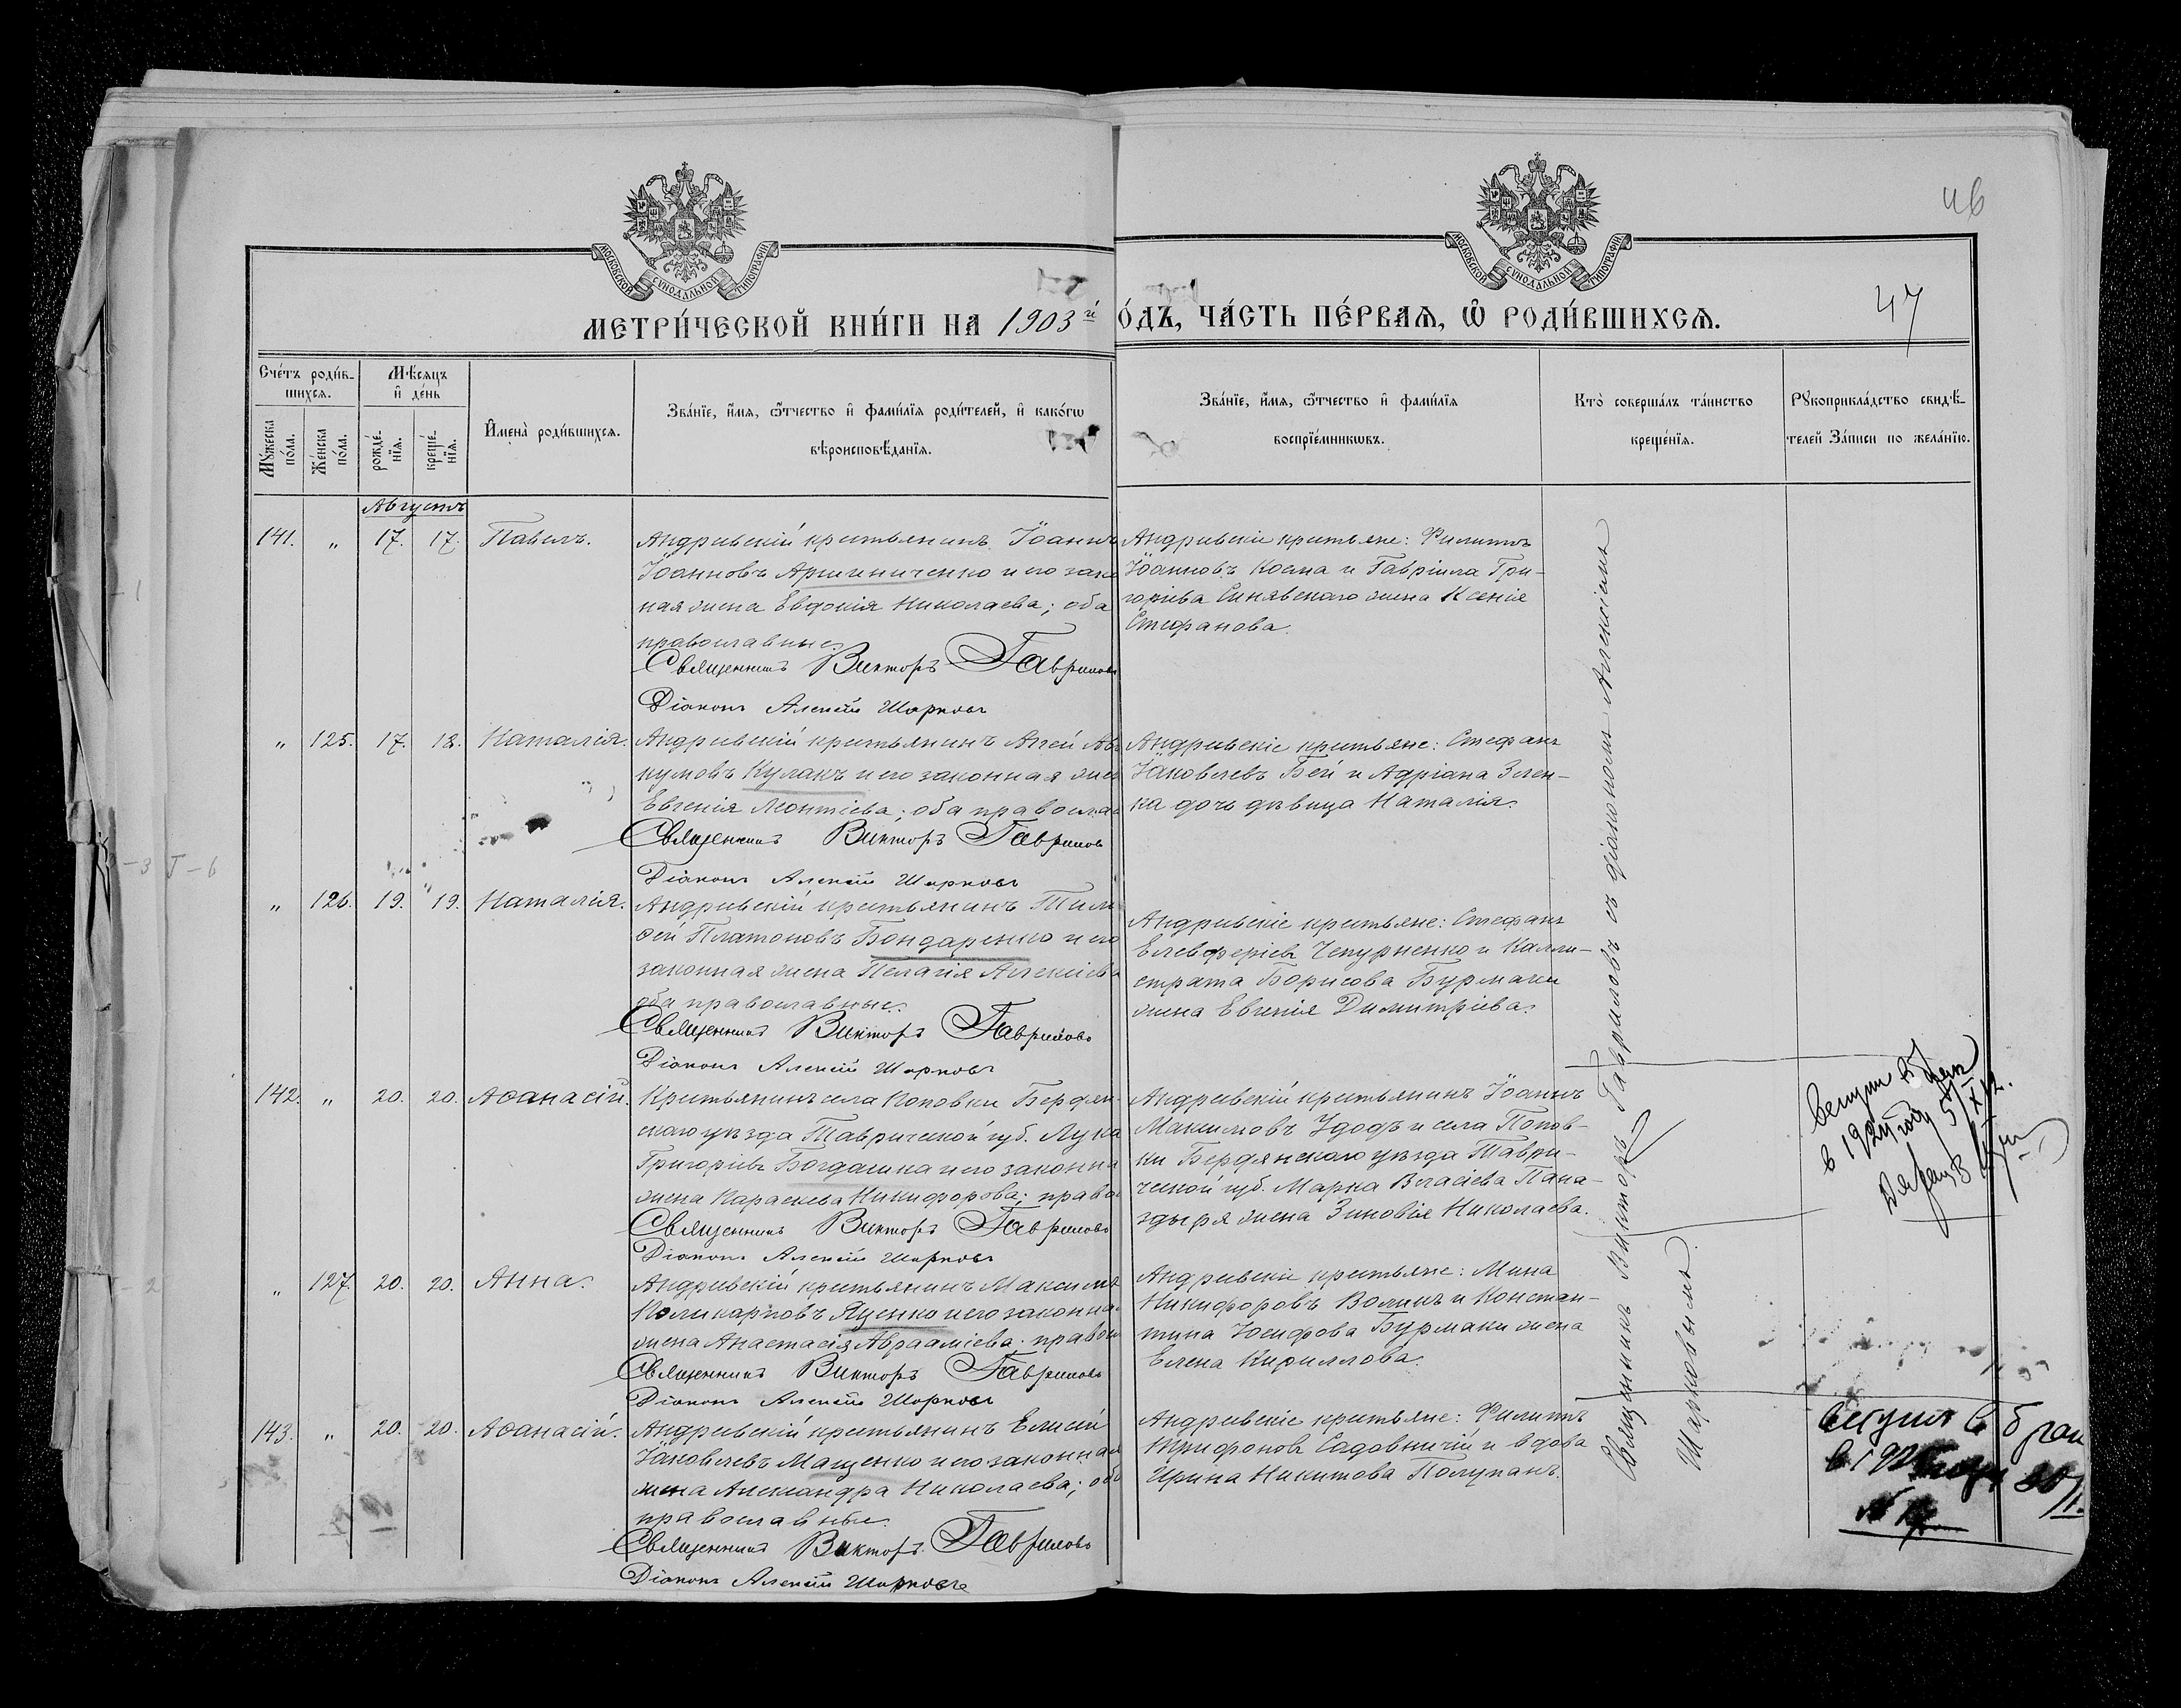 46
47
МОСКОВСКОЙ СѴНОДАЛЬНОЙ ТИПОГРАФІИ
МОСКОВСКОЙ СѴНОДАЛЬНОЙ ТИПОГРАФІИ
МЕТРИ́ЧЕСКОЙ КНИ́ГИ НА 1903й
О́ДЪ, ЧА́СТЬ ПЕ́РВАѦ, Ѡ҆ РОДИ́ВШИХСѦ.
Сче́тъ роди́в-
шихсѧ.
Мꙋ́жеска по́ла.
Же́нска по́ла.
Мѣ́сѧцъ
и҆ де́нь
рожде́-
нїѧ.
креще́-
нїѧ.
И҆мена̀ роди́вшихсѧ.
Зва́нїе, и҆́мѧ, ѻ҆́тчество и҆ фами́лїѧ роди́телей, и҆ како́гѡ
вѣроисповѣ́данїѧ.
Зва́нїе, и҆́мѧ, ѻ҆́тчество и҆ фами́лїѧ
воспрїе́мникѡвъ.
Кто̀ соверша́лъ та́инство
креще́нїѧ.
Рꙋкоприкла́дство свидѣ́-
телей За́писи по жела́нїю.
Августъ
141. " 17. 17. Павелъ.
Андреевскій крестьянинъ Іоаннъ
Іоанновъ Аршиниченко и его закон
ная жена Евдокія Николаева; оба
православные.
Священникъ Викторъ Гавриловъ
Діаконъ Алексій Шарковъ
Андреевскіе крестьяне: Филиппъ
Іоанновъ Косма и Гавріила Гри-
горіева Синявскаго жена Ксенія
Стефанова.
" 125. 17. 18. Наталія.
Андреевскій крестьянинъ Аггей Ав
кумовъ Кулакъ и его законная жен
Евгенія Леонтіева; оба православ
Священникъ Викторъ Гаврилов
Діаконъ Алексій Шарковъ
Андреевскіе крестьяне: Стефанъ
Іаковлевъ Бей и Адріана Зелен-
ка дочь дѣвица Наталія.
" 126. 19. 19. Наталія.
Андреевскій крестьянинъ Тимо
ѳей Платоновъ Бондаренко и его
законная жена Пелагія Алексіева
оба православные.
Священникъ Викторъ Гавриловъ
Діаконъ Алексій Шарковъ
Андреевскіе крестьяне: Стефанъ
Елевферіевъ Чепурненко и Калли-
страта Борисова Бурмаки
жена Евгенія Димитріева.
142. " 20. 20. Аѳанасій.
Крестьянинъ села Поповки Бердян
скаго уѣзда Таврической губ. Лука
Григоріевъ Богдашка и его законна
жена Параскева Никифорова; право
Священникъ Викторъ Гавриловъ
Діаконъ Алексій Шарковъ
Андреевскій крестьянинъ Іоаннъ
Максимовъ Удодъ и села Попов-
ки Бердянскаго уѣзда Таври-
ческой губ. Марка Власіева Пана-
здыря жена Зиновія Николаева.
" 127. 20. 20. Анна.
Андреевскій крестьянинъ Максимъ
Поликарповъ Яценко и его законна
жена Анастасія Авраамісва; право
Священникъ Викторъ Гавриловъ
Діаконъ Алексій Шарковъ
Андреевскіе крестьяне: Мина
Никифоровъ Воликъ и Констан-
тина Іосифова Бурмаки жена
Елена Кириллова.
143. " 20. 20. Аѳанасій.
Андреевскій крестьянинъ Елисей
Іаковлевъ Мащенко и его законная
жена Александра Николаева; оба
православные.
Священникъ Викторъ Гавриловъ
Діаконъ Алексій Шарковъ
Андреевскіе крестьяне: Филиппъ
Трифоновъ Садовничій и вдова
Ирина Никитова Полупанъ.
Священникъ Викторъ Гавриловъ съ діакономъ Алексіемъ
Шарковымъ.
в 192 году 5/XI
вступил в брак
в 192 году 20/I